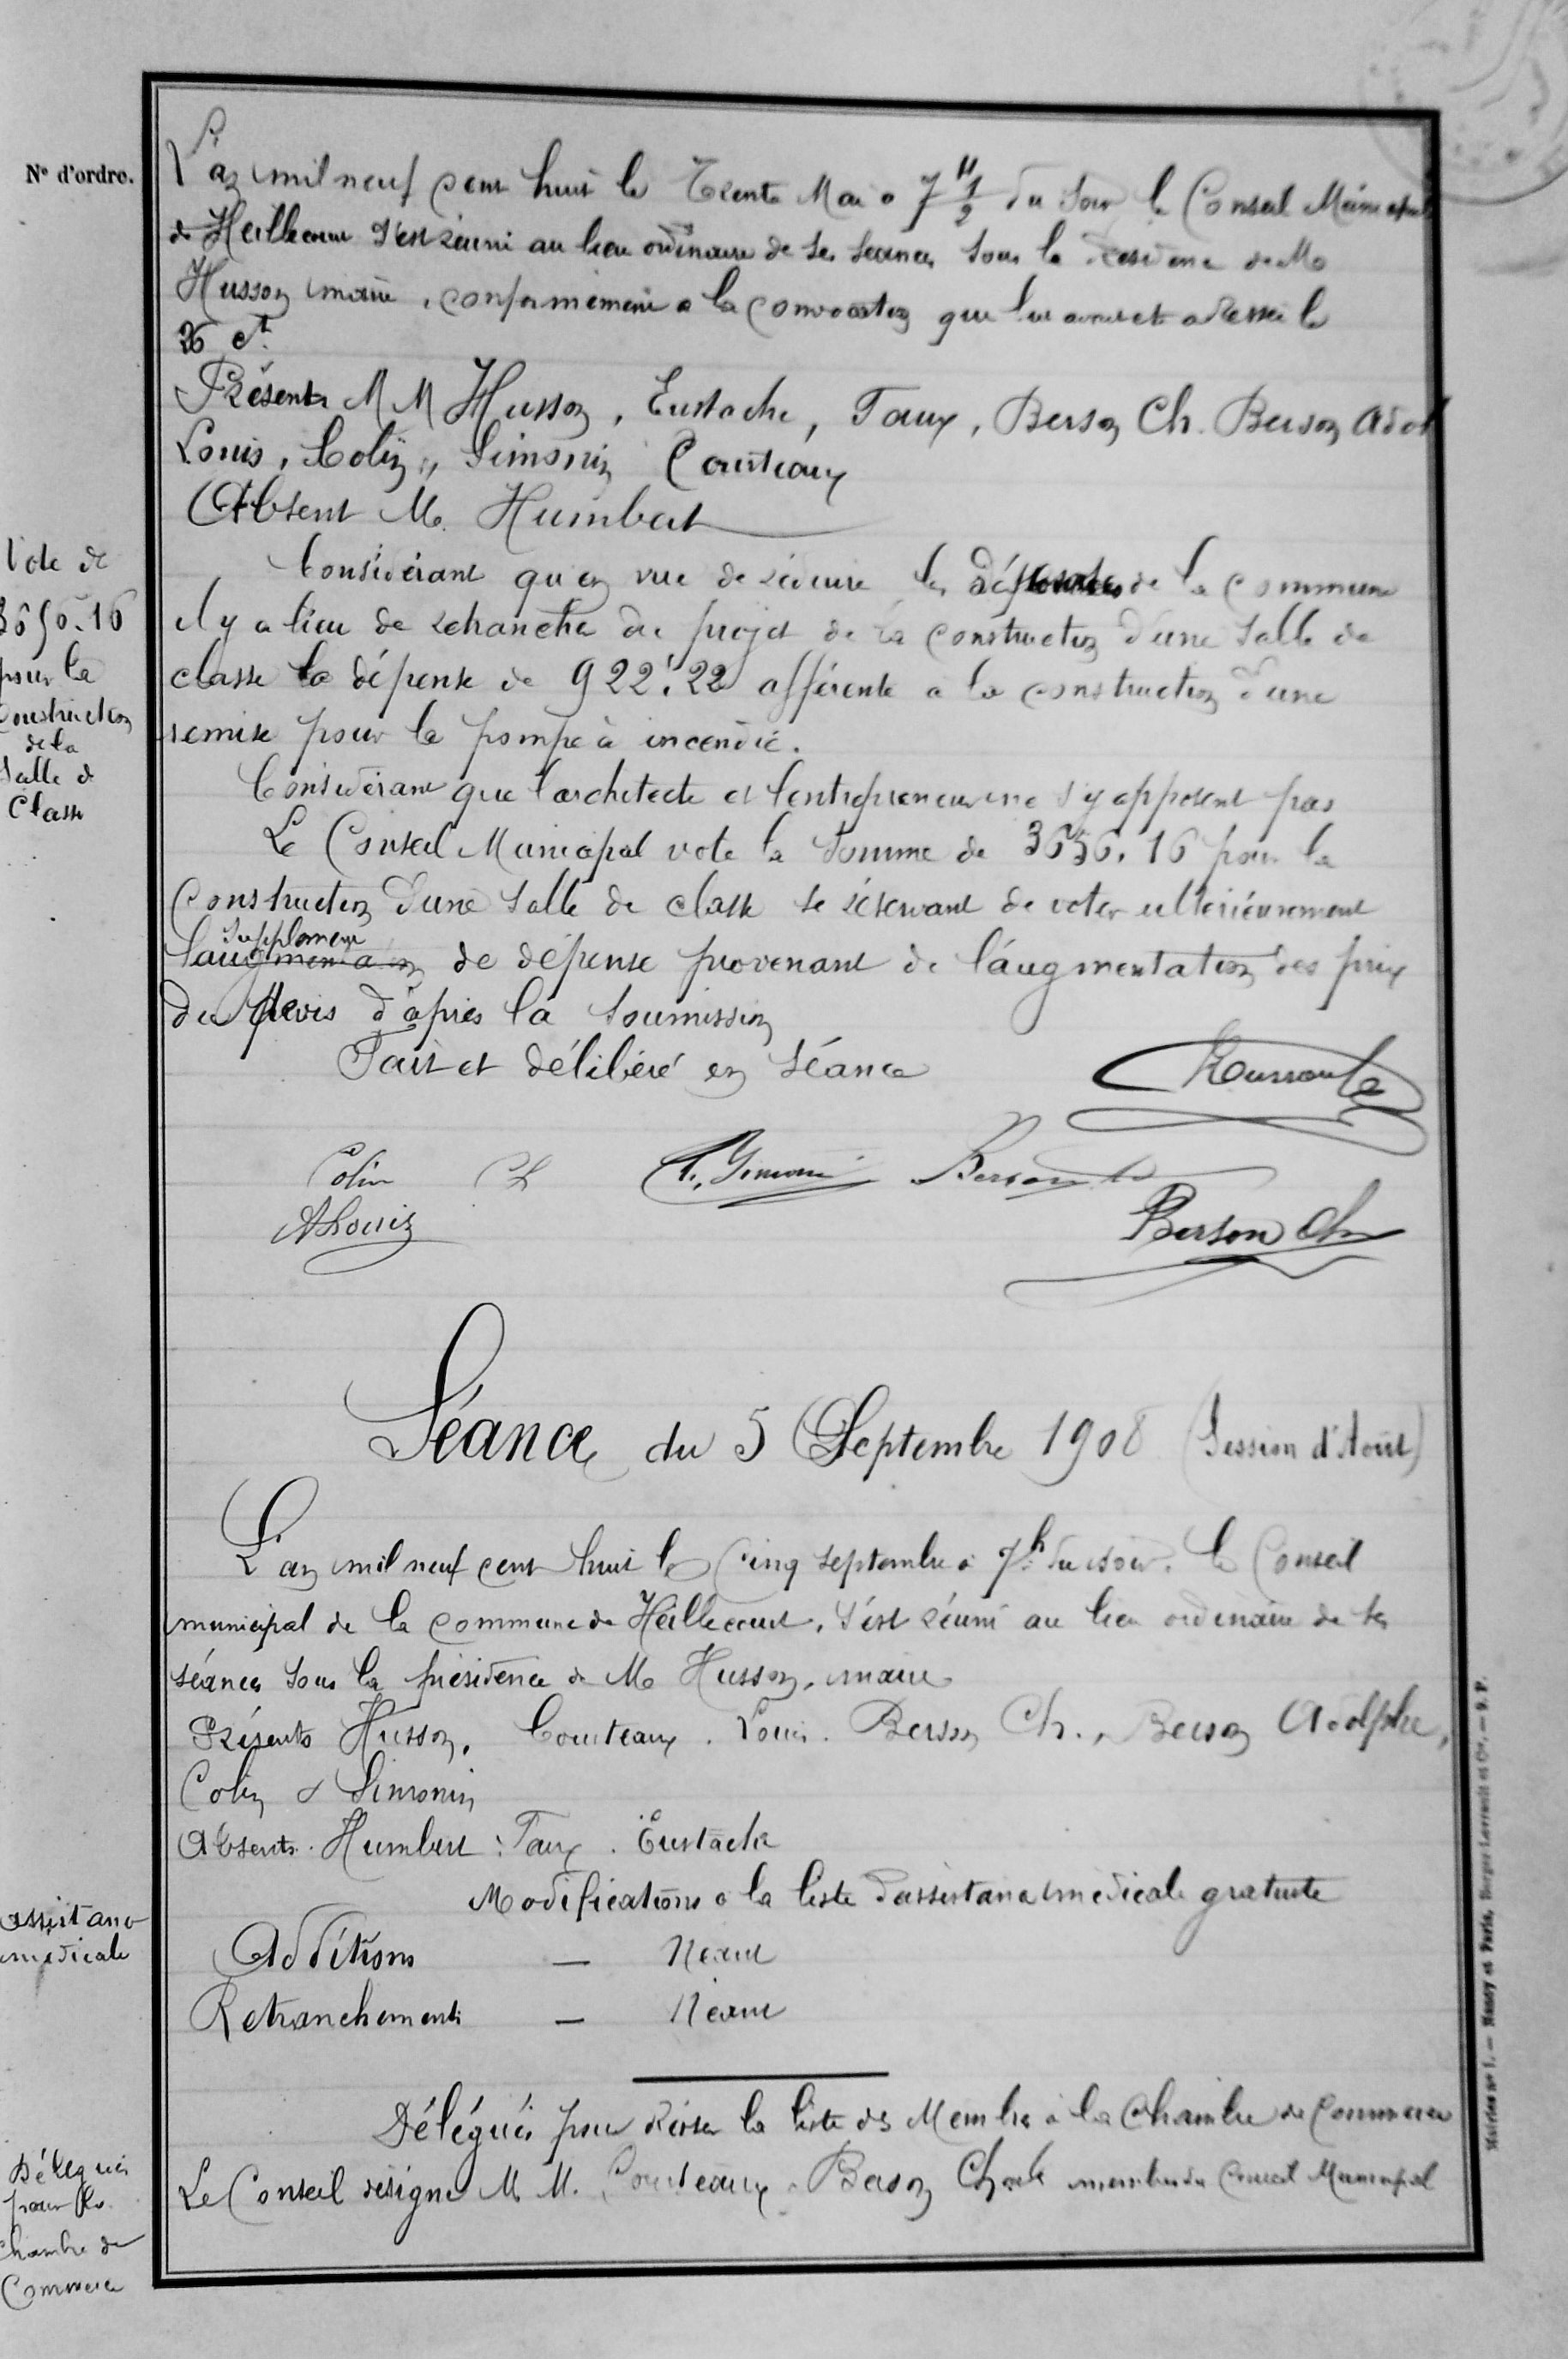 N° d'ordre.
L'an mil neuf cent huit le Trente Mai à 7 h 1/2 du soir le Conseil Municipal
de Heillecourt s'est réuni au lieu ordinaire de ses séances sous la Présidence de Mr
Husson maire, conformément à la convocation que lui avait adressée le
26 ct.
Présents M M Husson, Eustache, Taux, Berson Ch. Berson Adol
Louis, Colin, Simonin Courteaux
Absent M. Humbert
Vote de
3656.16
pour la
Construction
de la
Salle de
Classe
Considérant qu'en vue de réduire les dépenses de la commune
il y a lieu de retrancher du projet de la construction d'une salle de
classe la dépense de 922f.22 afférente à la construction d'une
remise pour la pompe à incendie.
Considérant que l'architecte et l'entrepreneur ne s'y opposent pas
Le Conseil Municipal vote la somme de 3656.16 pour la
Construction d'une salle de classe se réservant de voter ultérieurement
supplément
l'augmentation de dépense provenant de l'augmentation des prix
du devis d'après la soumission
Fait et délibéré en séance
Colin Ch Simonin Berson
A Louis Berson Ch
Séance du 5 Septembre 1908 (Session d'Août)
L'an mil neuf cent huit le Cinq septembre à 7h du soir. le Conseil
municipal de la commune de Heillecourt, s'est réuni au lieu ordinaire de ses
séances sous la présidence de Mr Husson, maire
Présents Husson, Courteaux. Louis. Berson Ch., Berson Adolphe,
Colin & Simonin
Absents. Humbert: Taux. Eustache
assistance
médicale
Modifications à la liste d'assistance médicale gratuite
Additions — Néant
Retranchements — Néant
Délégués pour réviser la liste des Membres à la Chambre de Commerce
Délégués
pour la
Chambre de
Commerce
Le Conseil désigne M. M. Courteaux. Berson Charles membres du Conseil Municipal
Mairies n° 1. — Nancy et Paris, Berger-Levrault et Cie. — 9. P.